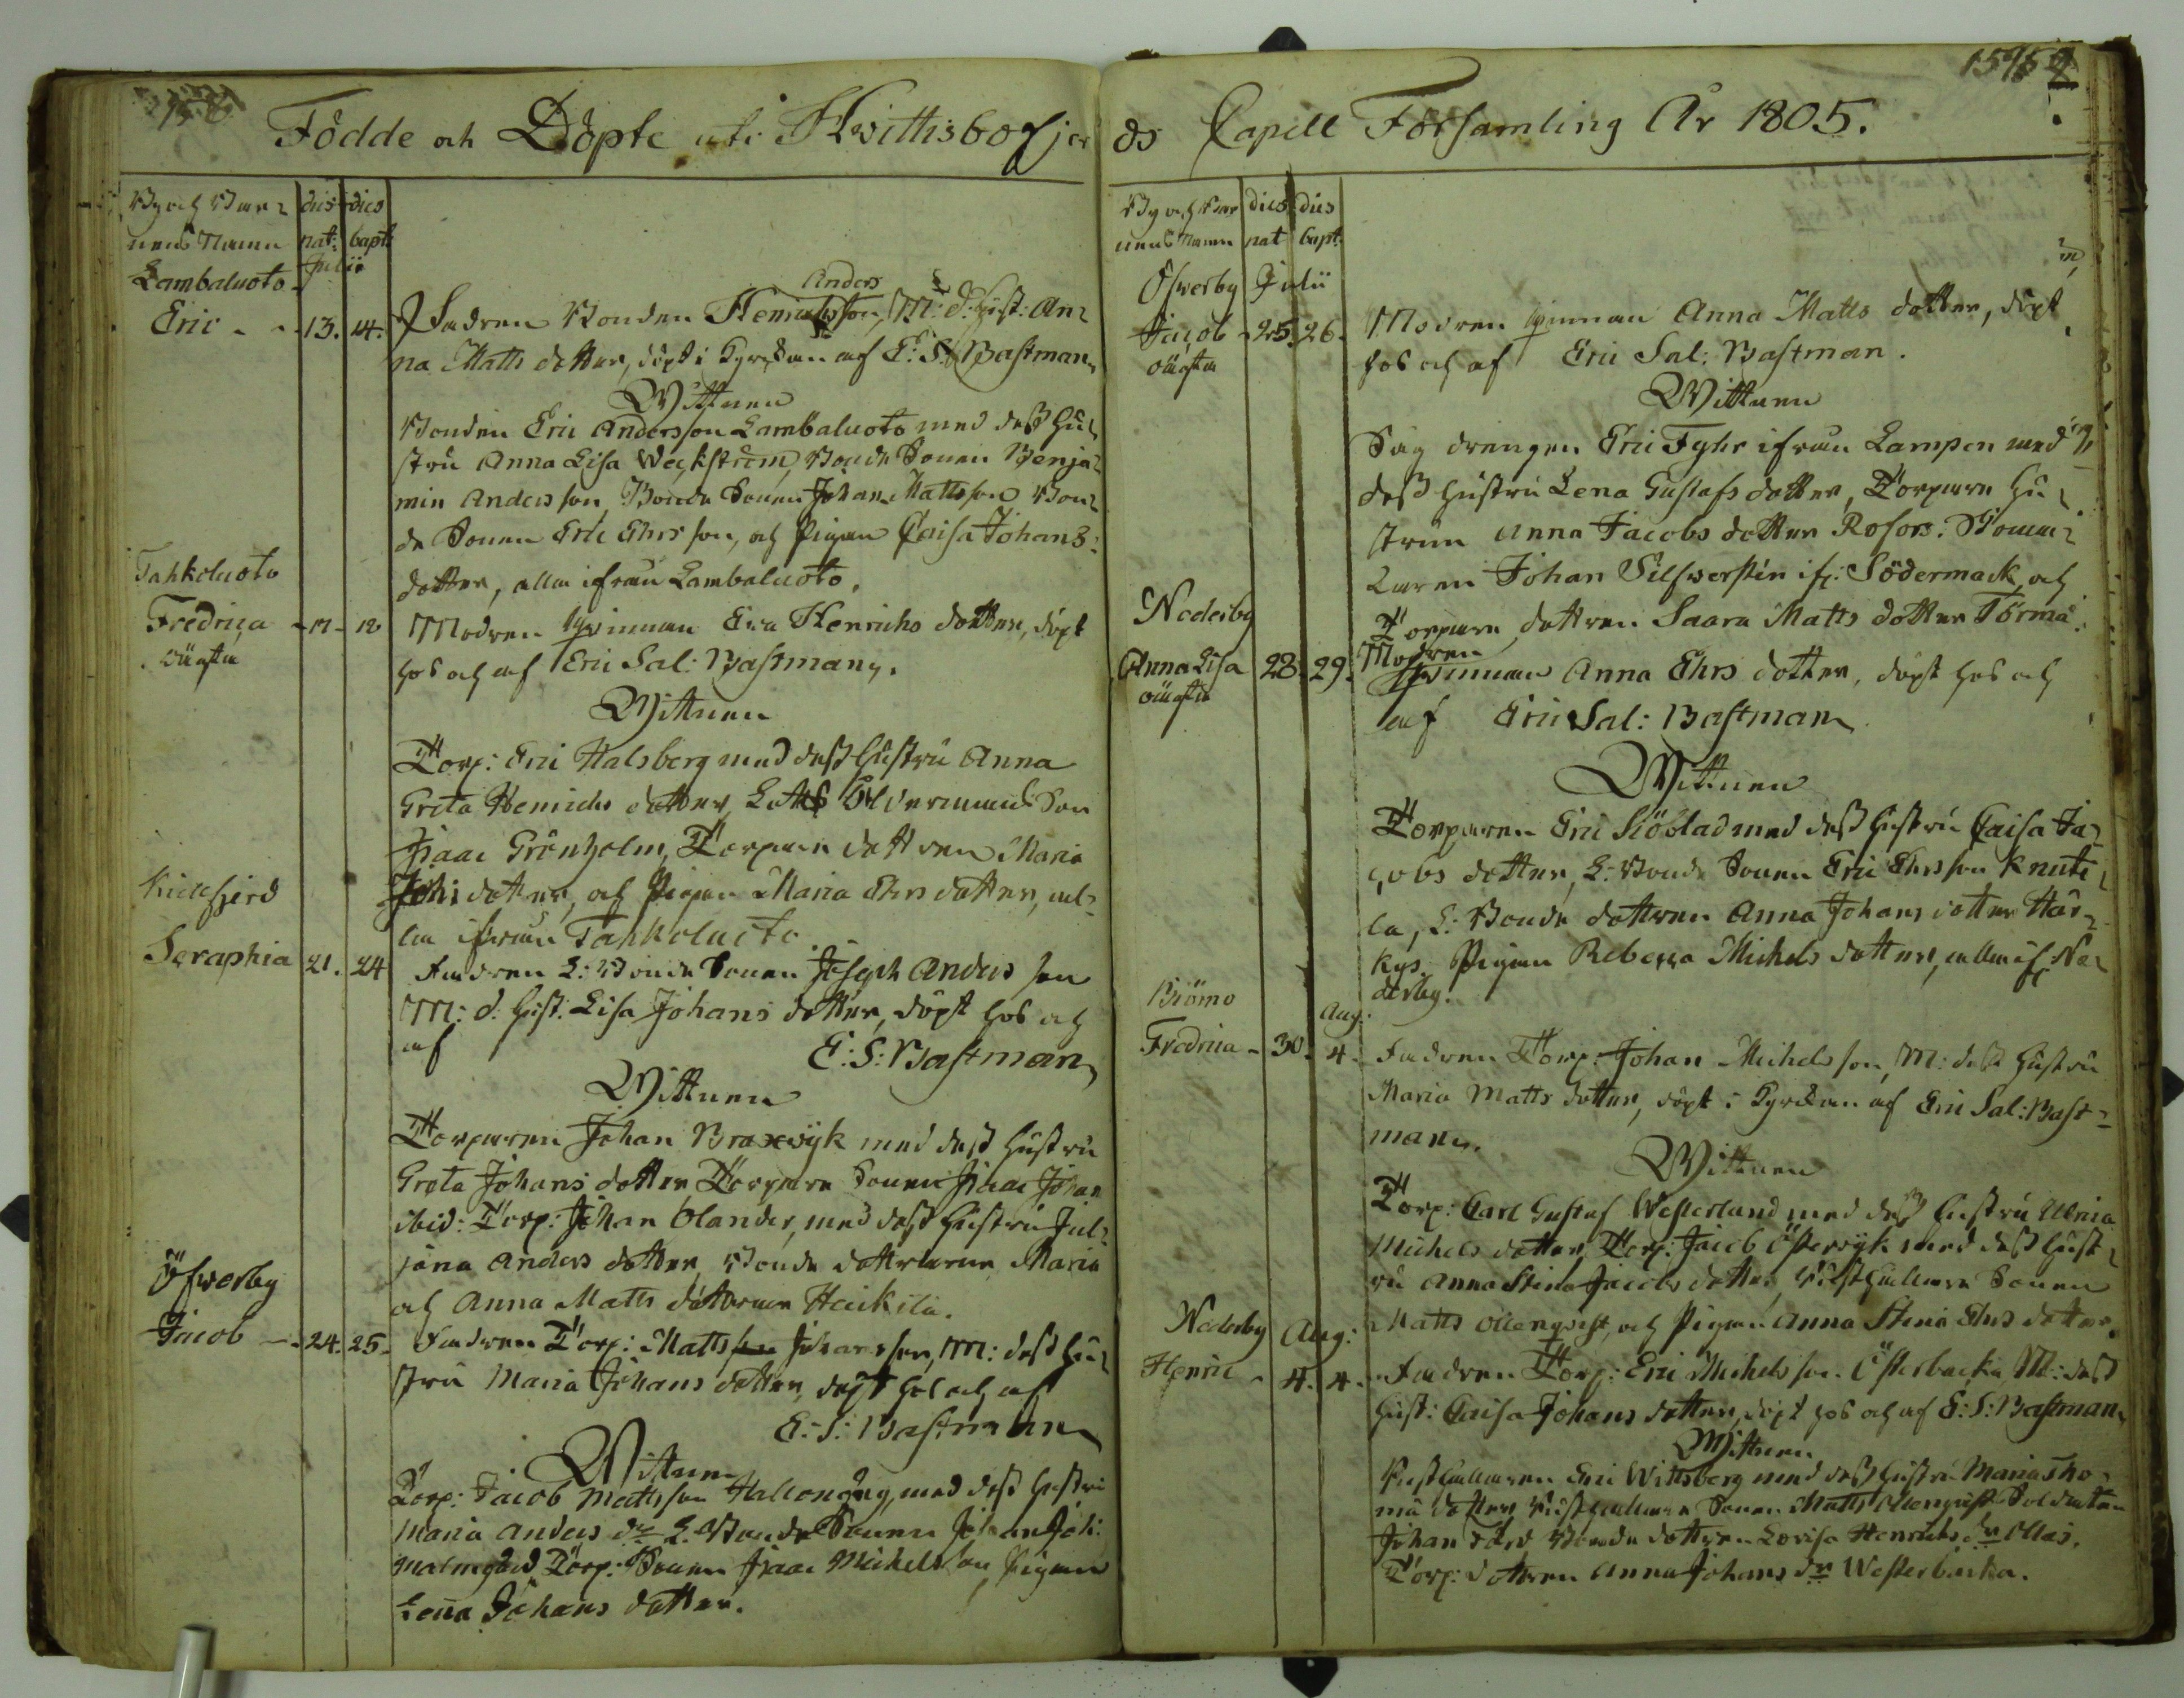 Födde och Döpte uti Hvittisbofjer
By och Bar-
nens Namn
dies nat:
dies bapt:
Julii
Lambaluoto
Eric - 13. 14.
Fadren Bonden Henricsson Anders, M: d: Hust: An-
na Matts dotter, döpt i Kyrckan af E: S: Bastman
Wittnen
Bonden Eric Andersson Lambaluoto med dess Hu-
stru Anna Lisa Weckström, Bonde Sonen Benja-
min Andersson, Bonde Sonen Johan Mattsson Bon-
de Sonen Eric Ehrsson, och Pigan Caisa Johans
dotter, alla ifrån Lambaluoto.
Tahkoluoto
Fredrica
oäckta
Modren qvinnan Eva Henrichs dotter, döpt
hos och af Eric Sal: Bastman.
Wittnen
Torp: Eric Halsberg med dess Hustru Anna
Greta Henrichs dotter, Lots Ålderman Son
Isaac Grönholm, Torpare dottren Maria
Johs dotter, och Pigan Maria Ehrs dotter, al-
la ifrån Tahkoluoto.
Kielfjerd
Seraphia 21. 24
Fadren L: Bonde Sonen Joseph Anders son
M: d: Hust: Lisa Johans dotter, döpt hos och
af E: S: Bastman
Wittnen
Torparen Johan Braxwijk med dess Hustru
Greta Johans dotter, Torpare Sonen Isaac Johan
ibid: Torp: Johan Olander, med dess Hustru Jul-
jana Anders dotter, Bonde dottrarne Maria
och Anna Matts döttrar Heickilä.
Öfwerby
Jacob - 24. 25.
Fadren Torp: Matts Johansson, M: dess Hu-
stru Maria Johans dotter, döpt hos och af
E: S: Bastman
Wittnen
Torp: Jacob Mattsson Hallonäng, med dess Hustru
Maria Anders dr L: Bonde Sonen Johan Joh:
Malmgård, Torp: Sonen Isaac Michelsson, Pigan
Lena Johans dotter.
ds Capell Församling År 1805.
By och Bar
nens Namn
dies nat
dies bapt.
Öfwerby Julii
Jacob - 25. 26.
oäckta
Modren qvinnan Anna Matts dotter, döpt
hos och af Eric Sal: Bastman.
Wittnen
Såg drengen Eric Fyhr ifrån Lampen med
dess Hustru Lena Gustafs dotter, Torpare Hu-
strun Anna Jacobs dotter Rosors: Tom-
karen Johan Silfwerstén ifr: Södermack, och
Torpare dottren Saara Matts dotter Törmä.
Nederby
Anna Lisa 28. 29.
oäckta
Modren
qvinnan Anna Ehrs dotter, döpt hos och
af Eric Sal: Bastman
Wittnen
Torparen Eric Siöblad med dess Hustru Caisa Ja-
cobs dotter, L: Bonde Sonen Eric Ehrsson Knuti-
la, L: Bonde dottren Anna Johans dotter Här-
kys. Pigan Rebecca Michels dotter, alla ifr: Ne-
derby.
Biömo Aug:
Fredrica - 30. 4.
Fadren Torp: Johan Michelsson, M: dess Hustru
Maria Matts dotter, döpt i Kyrckan af Eric Sal: Bast-
man.
Wittnen
Torp: Carl Gustaf Westerlund med dess Hustru Ulrica
Michels dotter, Torp: Jacob Österwijk med dess Hust-
ru Anna Stina Jacobs dotter, Sonen
Matts Ollenqvist, och Pigan Anna Stina Ehrs dotter.
Nederby Aug:
Henric - 4. 4.
Fadren Torp: Eric Michelsson Österbacka, M: dess
Hust: Caisa Johans dotter, döpt hos och af E: S: Bastman
Wittnen
Eric Wittsberg med dess Hustru Maria Tho-
mä dotter, Sonen Matts Ollenqvist Soldaten
Johan Bonde dottren Lovisa Henrichs dr Ollas.
Torp: dottren Anna Johans dr Westerbacka.